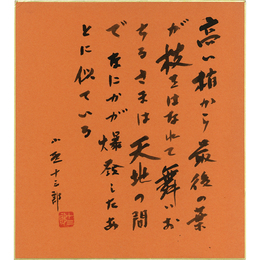 高い樹から最後の葉
が枝をはなれて舞いお
ちるさまは天地の間
でなにかが爆発したあ
とに似ている
小野十三郎